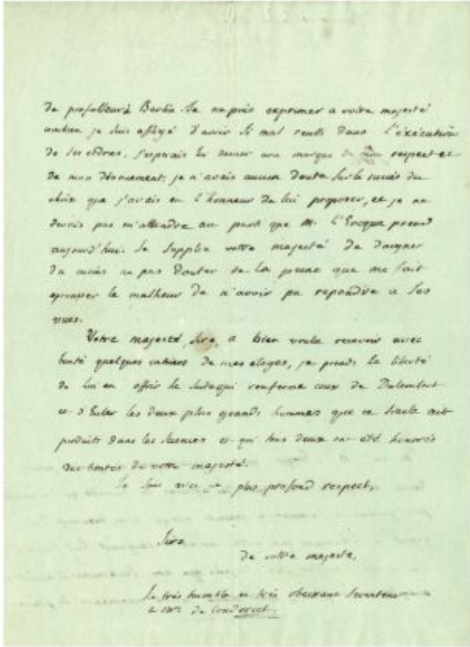 de professeur à Berlin Je ne puis exprimer a votre majesté
combien je suis affligé d'avoir si mal reussi dans l'exécution
de ses ordres. j'esperais lui donner une marque de mon respect et
de mon dévouement, je n'avais aucun doute sur le succès du
choix que j'avais eu l'honneur de lui proposer, et je ne
devais pas m'attendre au parti que M. prend
aujourd'hui. Je supplie votre majesté de daigner
du moins ne pas douter de la peine que me fait
eprouver le malheur de n'avoir pu repondre a ses
vues.
Votre majesté, Sire, a bien voulu recevoir avec
bonté quelques cahiers de mes eloges, je prends la liberté
de lui en offrir la suite qui renferme ceux de Dalembert
et d'Euler les deux plus grands hommes que ce siecle ait
produits dans les sciences et qui tous deux ont été honorés
des bontés de votre majesté.
Je suis avec le plus profond respect,
Sire
de votre majesté,
Le très humble et très obeissant serviteur
le de Condorcet.